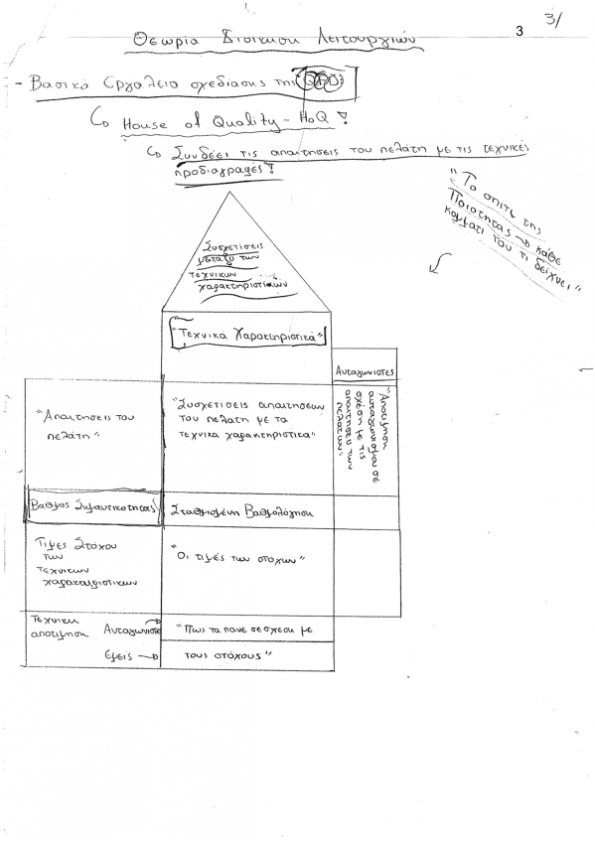 3/
3
Θεωρία Διοίκηση Λειτουργιών
- Βασικό Εργαλείο σχεδίασης της QFD:
↳ House of Quality - HoQ !
↳ Συνδέει τις απαιτήσεις του πελάτη με τις τεχνικές
προδιαγραφές !
"Το σπίτι της
Ποιότητας → κάθε
κομμάτι του τι δείχνει"
Συσχετίσεις
μεταξύ των
τεχνικών
χαρακτηριστικών
"Τεχνικά Χαρακτηριστικά"
Ανταγωνιστες
"Απαιτησεις του
πελάτη"
"Συσχετίσεις απαιτησεων
του πελάτη με τα
τεχνικα χαρακτηριστικα"
"Αποτιμηση
ανταγωνισμου σε
σχέση με τις
απαιτησεις των
πελατων"
Βαθμος Σημαντικοτητας
Σταθμισμένη Βαθμολόγηση
Τιμες Στόχου
των
τεχνικων
χαρακτηριστικων
"Οι τιμές των στόχων"
Τεχνικη
αποτιμηση
Ανταγωνιστες →
"Πως τα πανε σε σχεση με
Εμείς →
τους στόχους"